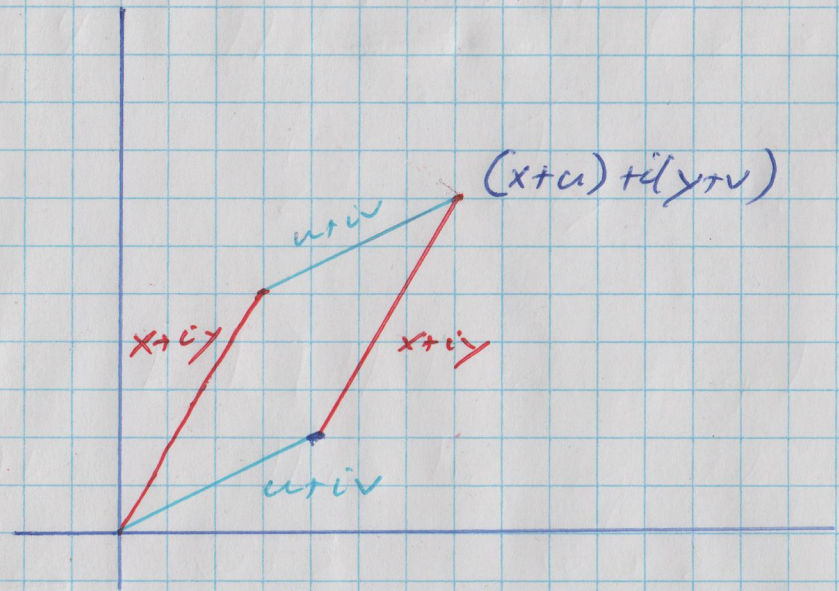 (x+u)+i(y+v)
u+iv
x+iy
x+iy
u+iv